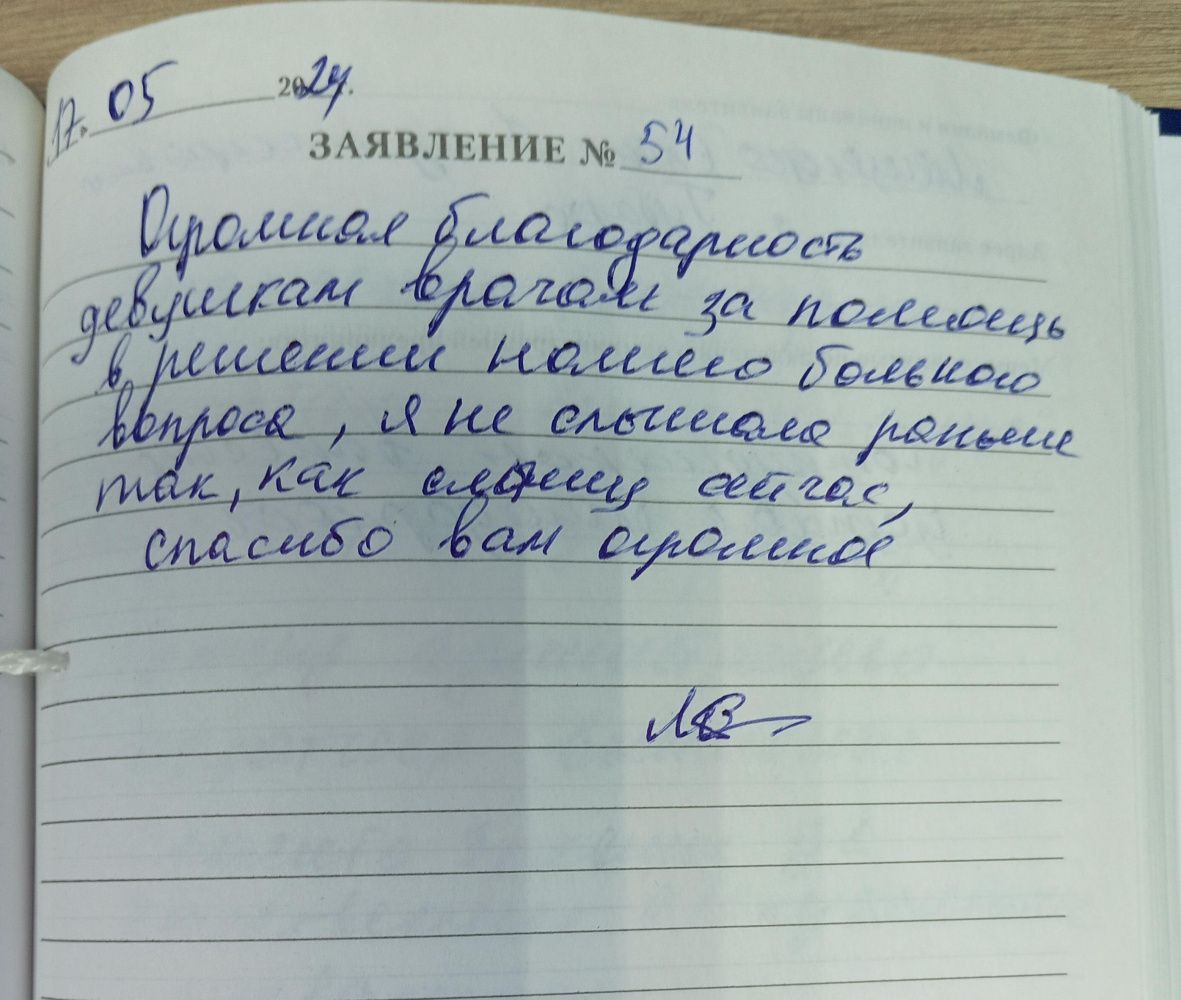 17. 05 2024.
ЗАЯВЛЕНИЕ № 54
Огромная благодарность
девушкам врачам за помощь
в решении нашего больного
вопроса, я не слышала раньше
так, как слышу сейчас,
спасибо вам огромное